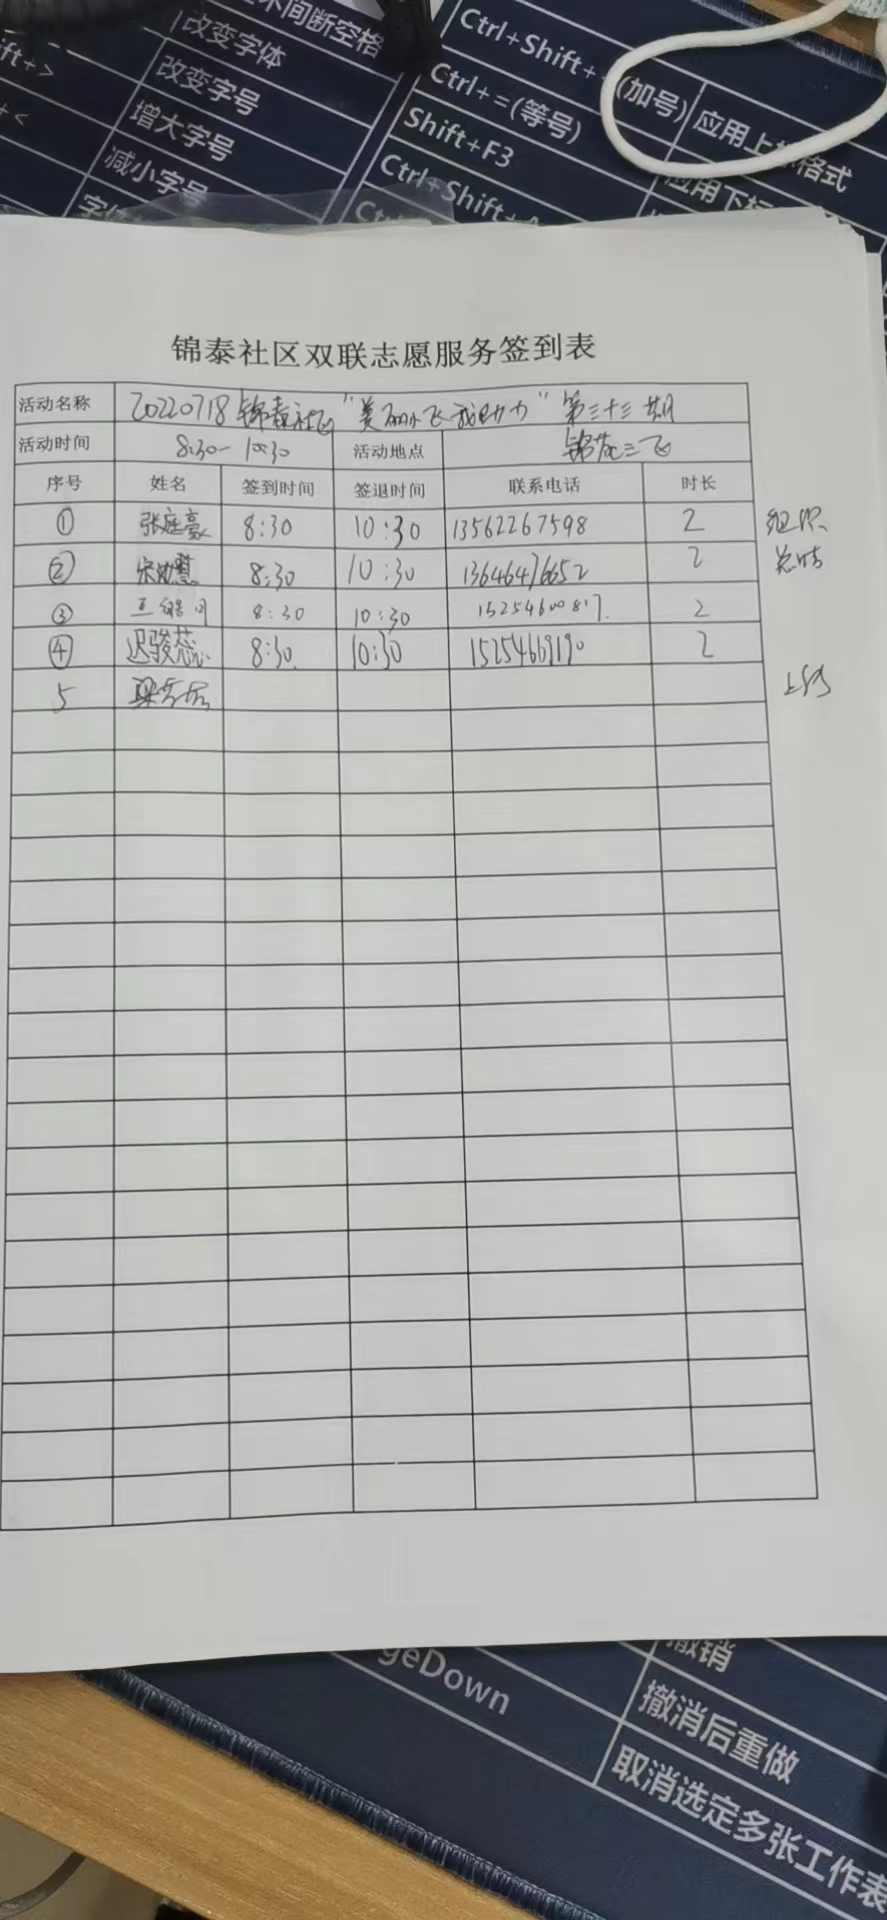 不间断空格
改变字体
改变字号
增大字号
减小字号
Ctrl+Shift+
(加号)
应用上标格式
Ctrl+=(等号)
Shift+F3
Ctrl+Shift+
锦泰社区双联志愿服务签到表
活动名称 20220718锦泰社区"美丽小区我助力"第三十三期
活动时间 8:30-10:30 活动地点 锦苑三区
序号 姓名 签到时间 签退时间 联系电话 时长
① 张庭豪 8:30 10:30 13562267598 2 组织
② 8:30 10:30 13646476652 2 总结
③ 8:30 10:30 2
④ 迟骏蕊 8:30 10:30 15254669190 2
5 上传
geDown
撤销
撤消后重做
取消选定多张工作表